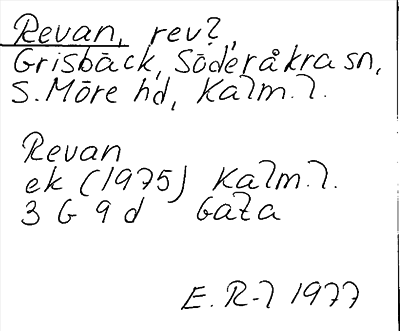 Revan, rev?,
Grisbäck, Söderåkra sn,
S. Möre hd, Kalm. l.
Revan
ek (1975) Kalm. l.
3 G 9 d gata
E. R-l 1977